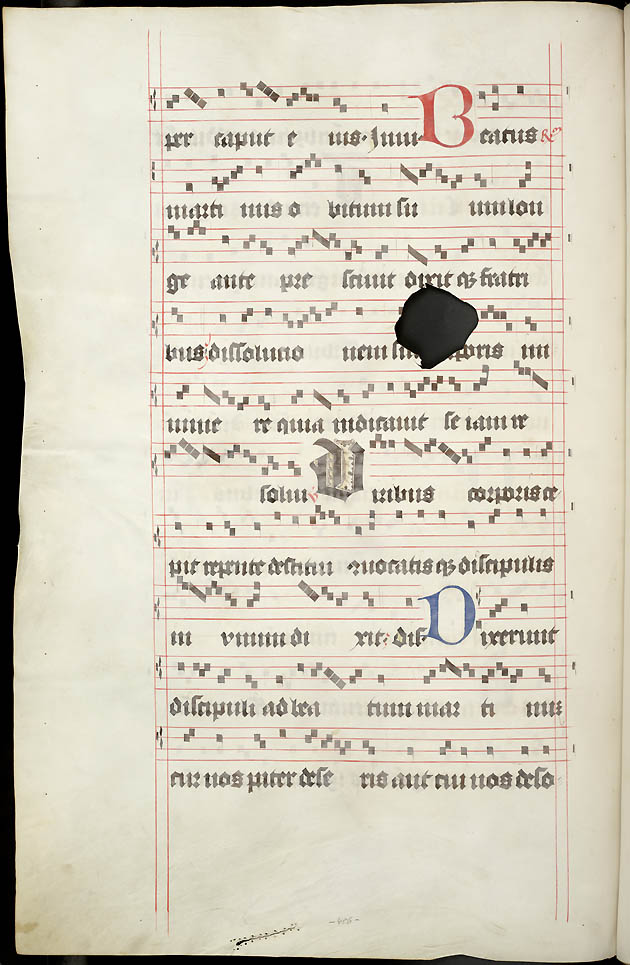 per caput e ius. Inui Beatus R
marti nus o bitum su um lon
ge ante pre sciuit dixit qz fratri
bus dissolucio nem poris im
mine re quia indicauit se iam re
solui Viribus corporis ce
pit repente destitui conuocatis qz discipulis
in vnum di xit. dis. Dixerunt
discipuli ad bea tum mar ti num
cur nos pater dese ris aut cui nos deso